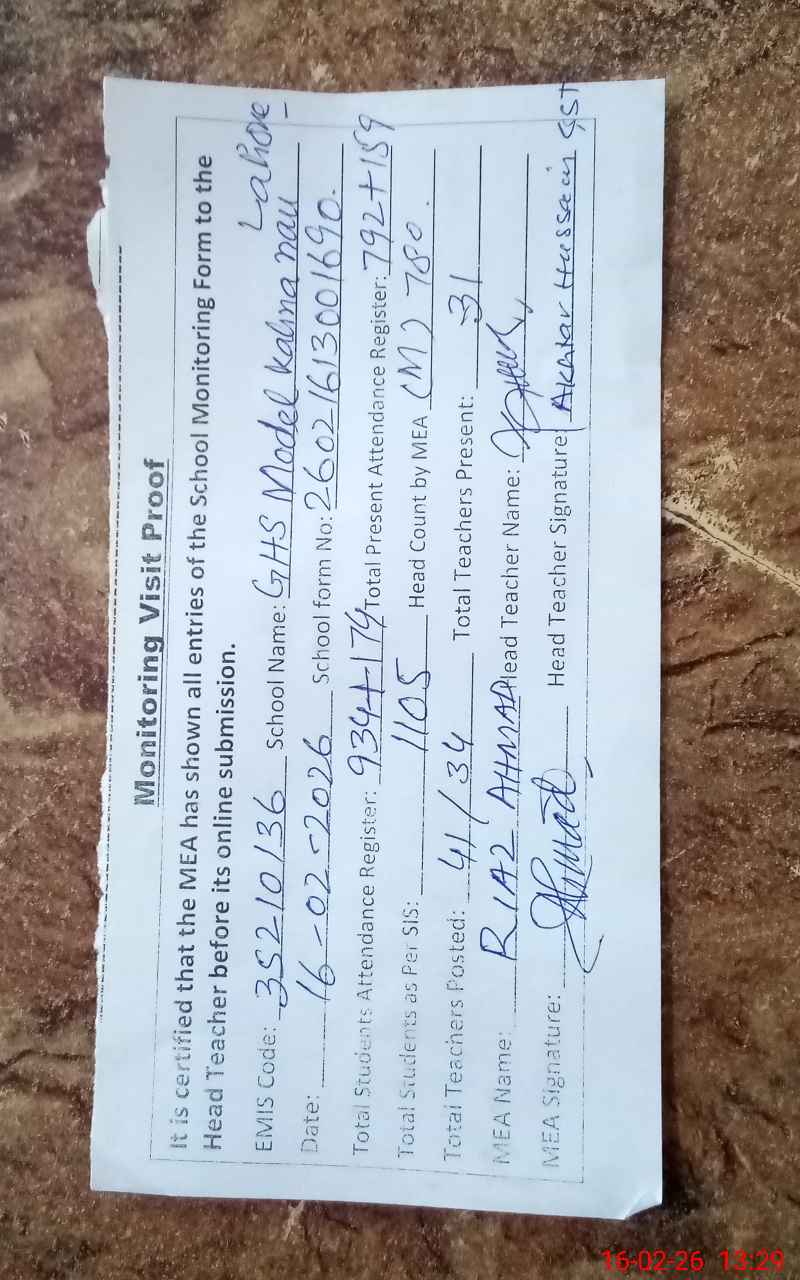 Monitoring Visit Proof
It is certified that the MEA has shown all entries of the School Monitoring Form to the
Head Teacher before its online submission.
EMIS Code: 35210136 School Name: GHS Model Kahna nau Lahore
Date: 16-02-2026 School form No: 26021613001690.
Total Students Attendance Register: 934+174 Total Present Attendance Register: 792+159
Total Students as Per SIS: 1105 Head Count by MEA (M) 780.
Total Teachers Posted: 41/34 Total Teachers Present: 31
MEA Name: RIAZ AHMAD Head Teacher Name:
MEA Signature: Ahmad Head Teacher Signature Akhtar Hussain SST
16-02-26 13:29